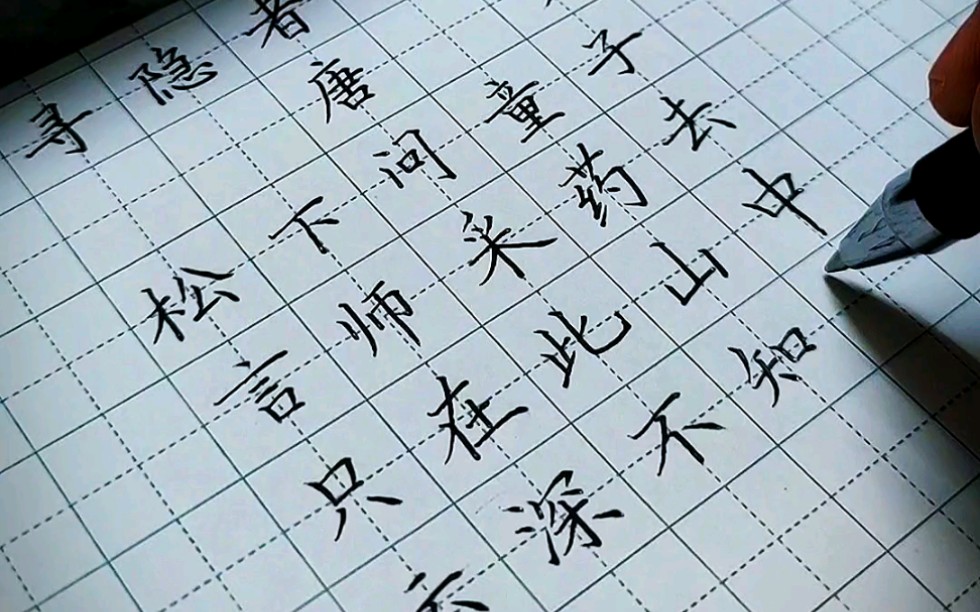 寻隐者
唐
松下问童子
言师采药去
只在此山中
云深不知